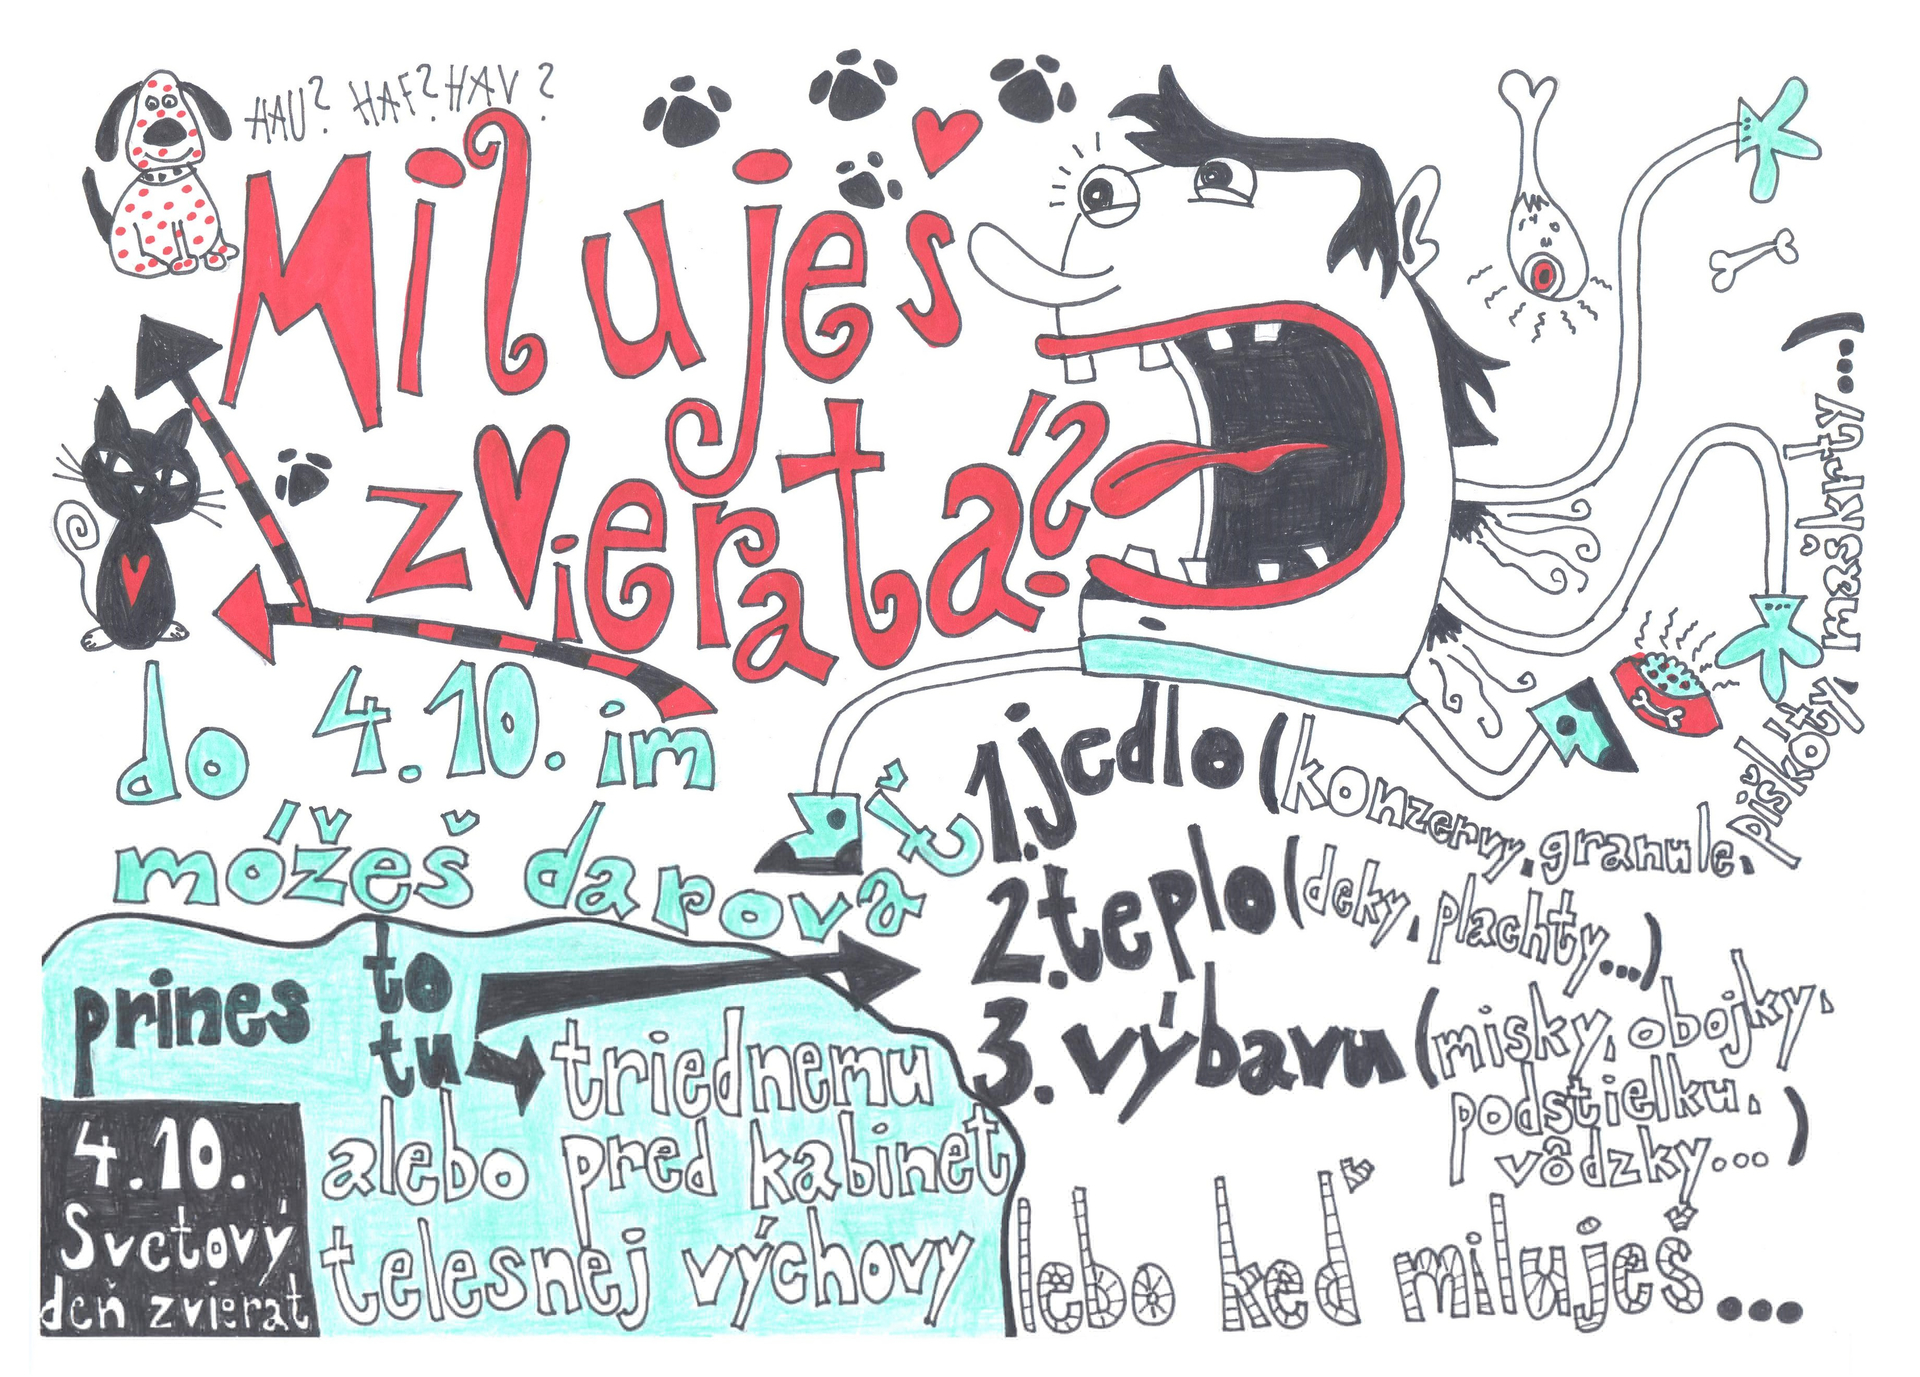 HAU? HAF? HAV?
Miluješ
zvieratá?
do 4.10. im
móžeš darovať
1. jedlo (konzervy, granule, piškóty, maškrty...)
2. teplo (deky, plachty...)
3. výbavu (misky, obojky,
podstielku,
vôdzky...)
prines to
tu triednemu
alebo pred kabinet
telesnej výchovy
4.10.
Svetový
deň zvierat
lebo keď miluješ...